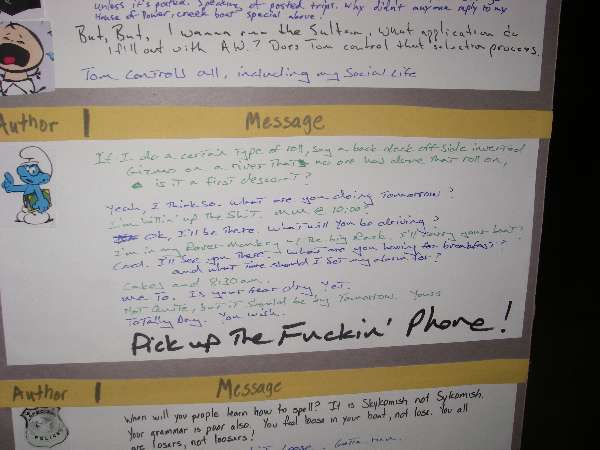 unless it's posted. Speaking of posted trips, why didn't anyone reply to my
House of Power, creek boat special above.
But, But, I wanna run the Sultan, what application do
i fill out with A.W.? Does Tom control that selection process.
Tom controls all, including my Social Life
Author | Message
If I do a certain type of roll, say a back deck off-side inverted
Gizmo on a river that no one has done that roll on,
is it a first descent?
Yeah, I think so. What are you doing tomorrow?
I'm hittin' up the Shit. @ 10:00?
Ok, I'll be there. What will you be driving?
I'm in my Rover Monkey w/ the big Rack. I'll carry your boat!
Cool. I'll see you there. What are you having for breakfast?
and what time should I set my alarm for?
Cakes and 8:30 am.
me to. Is your gear dry yet.
Not Quite, but it should be by tomorrow. Yours
Totally Dry. You wish.
Pick up The Fuckin' Phone!
Author | Message
POLICE
When will you people learn how to spell? It is Skykomish not Sykomish.
Your grammar is poor also. You feel loose in your boat, not lose. You all
are losers, not loosers!
loose. Gotta run.